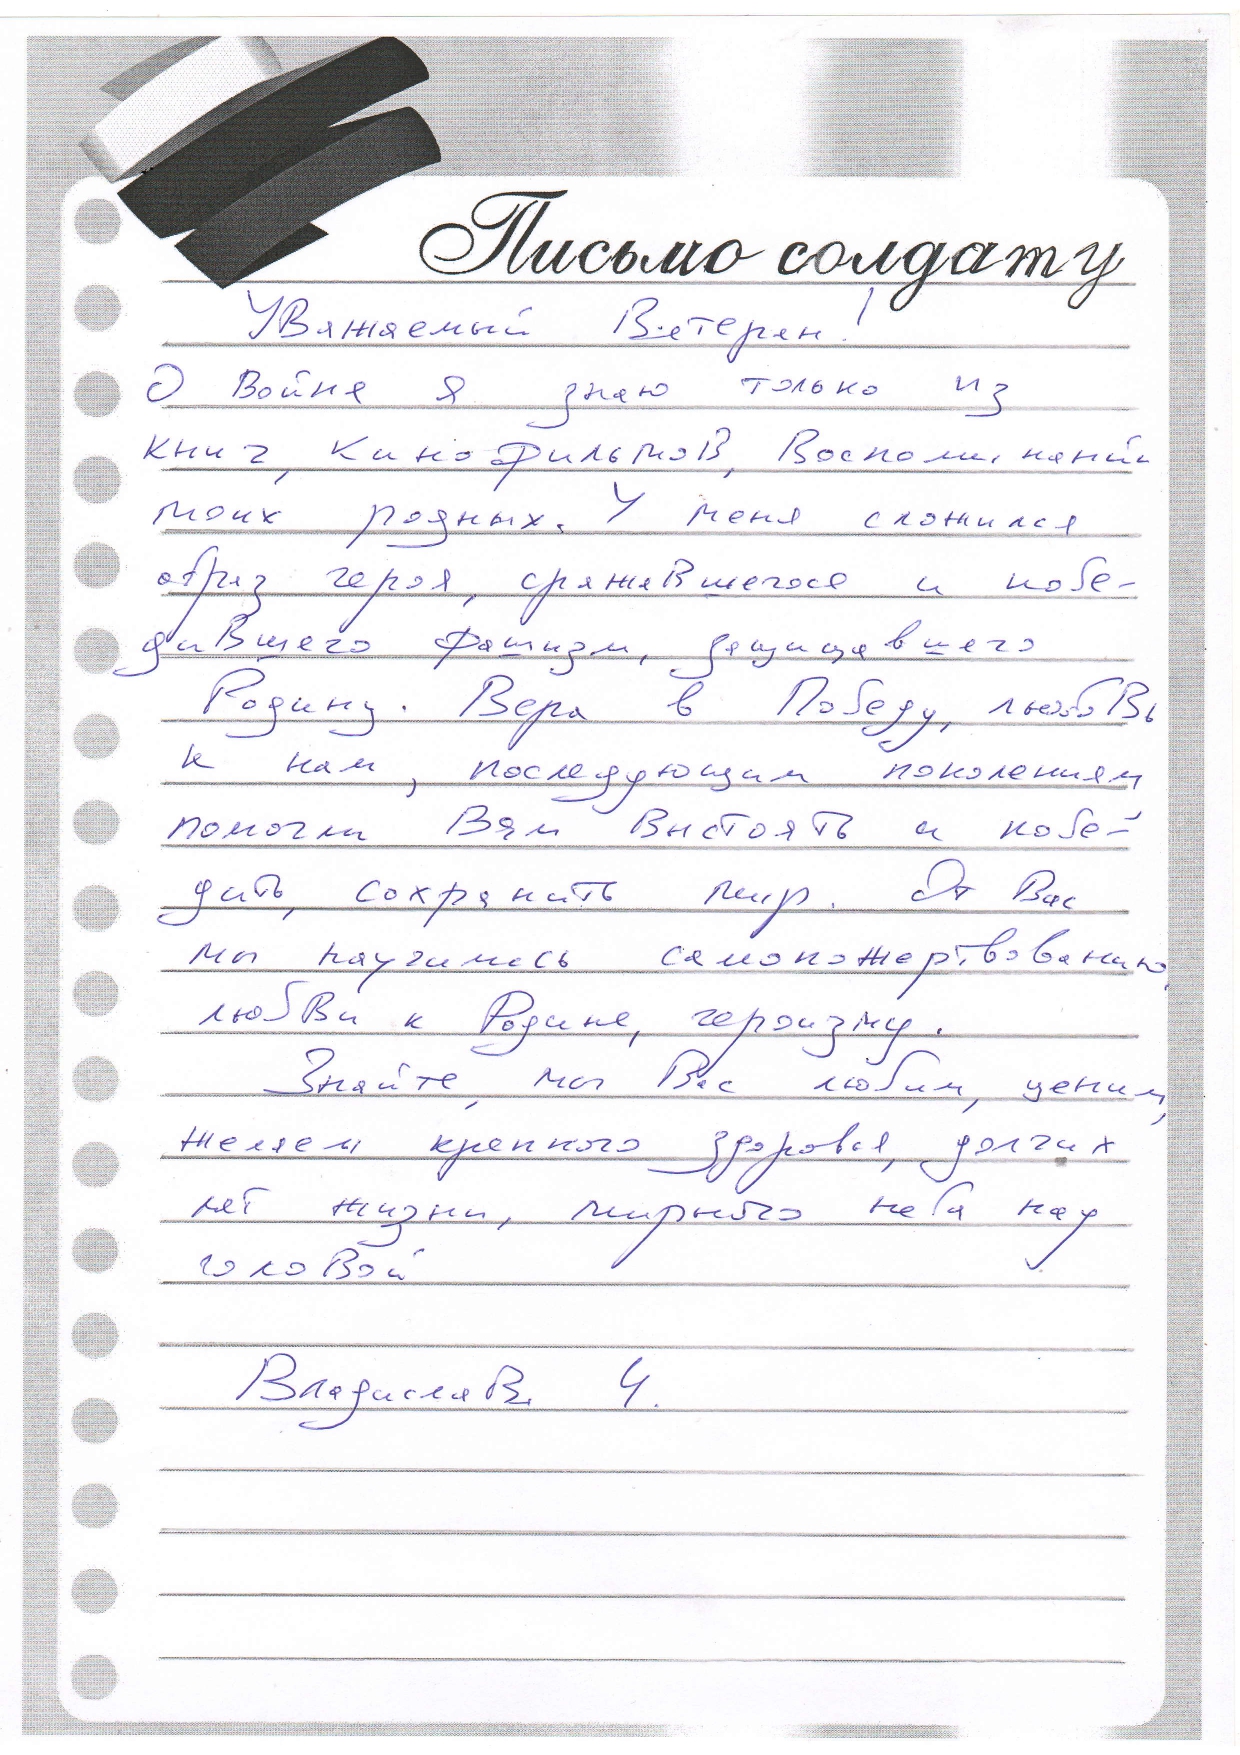 Письмо солдату
Уважаемый Ветеран!
О Войне я знаю только из
книг, кинофильмов, Воспоминаний
моих родных. У меня сложился
образ героя, сражавшегося и побе-
дившего фашизм, защищавшего
Родину. Вера в Победу, любовь
к нам, последующим поколениям
помогли Вам выстоять и побе-
дить, сохранить мир. От Вас
мы научились самопожертвованию,
любви к Родине, героизму.
Знайте, мы Вас любим, ценим,
желаем крепкого здоровья, долгих
лет жизни, мирного неба над
головой
Владислав Ч.